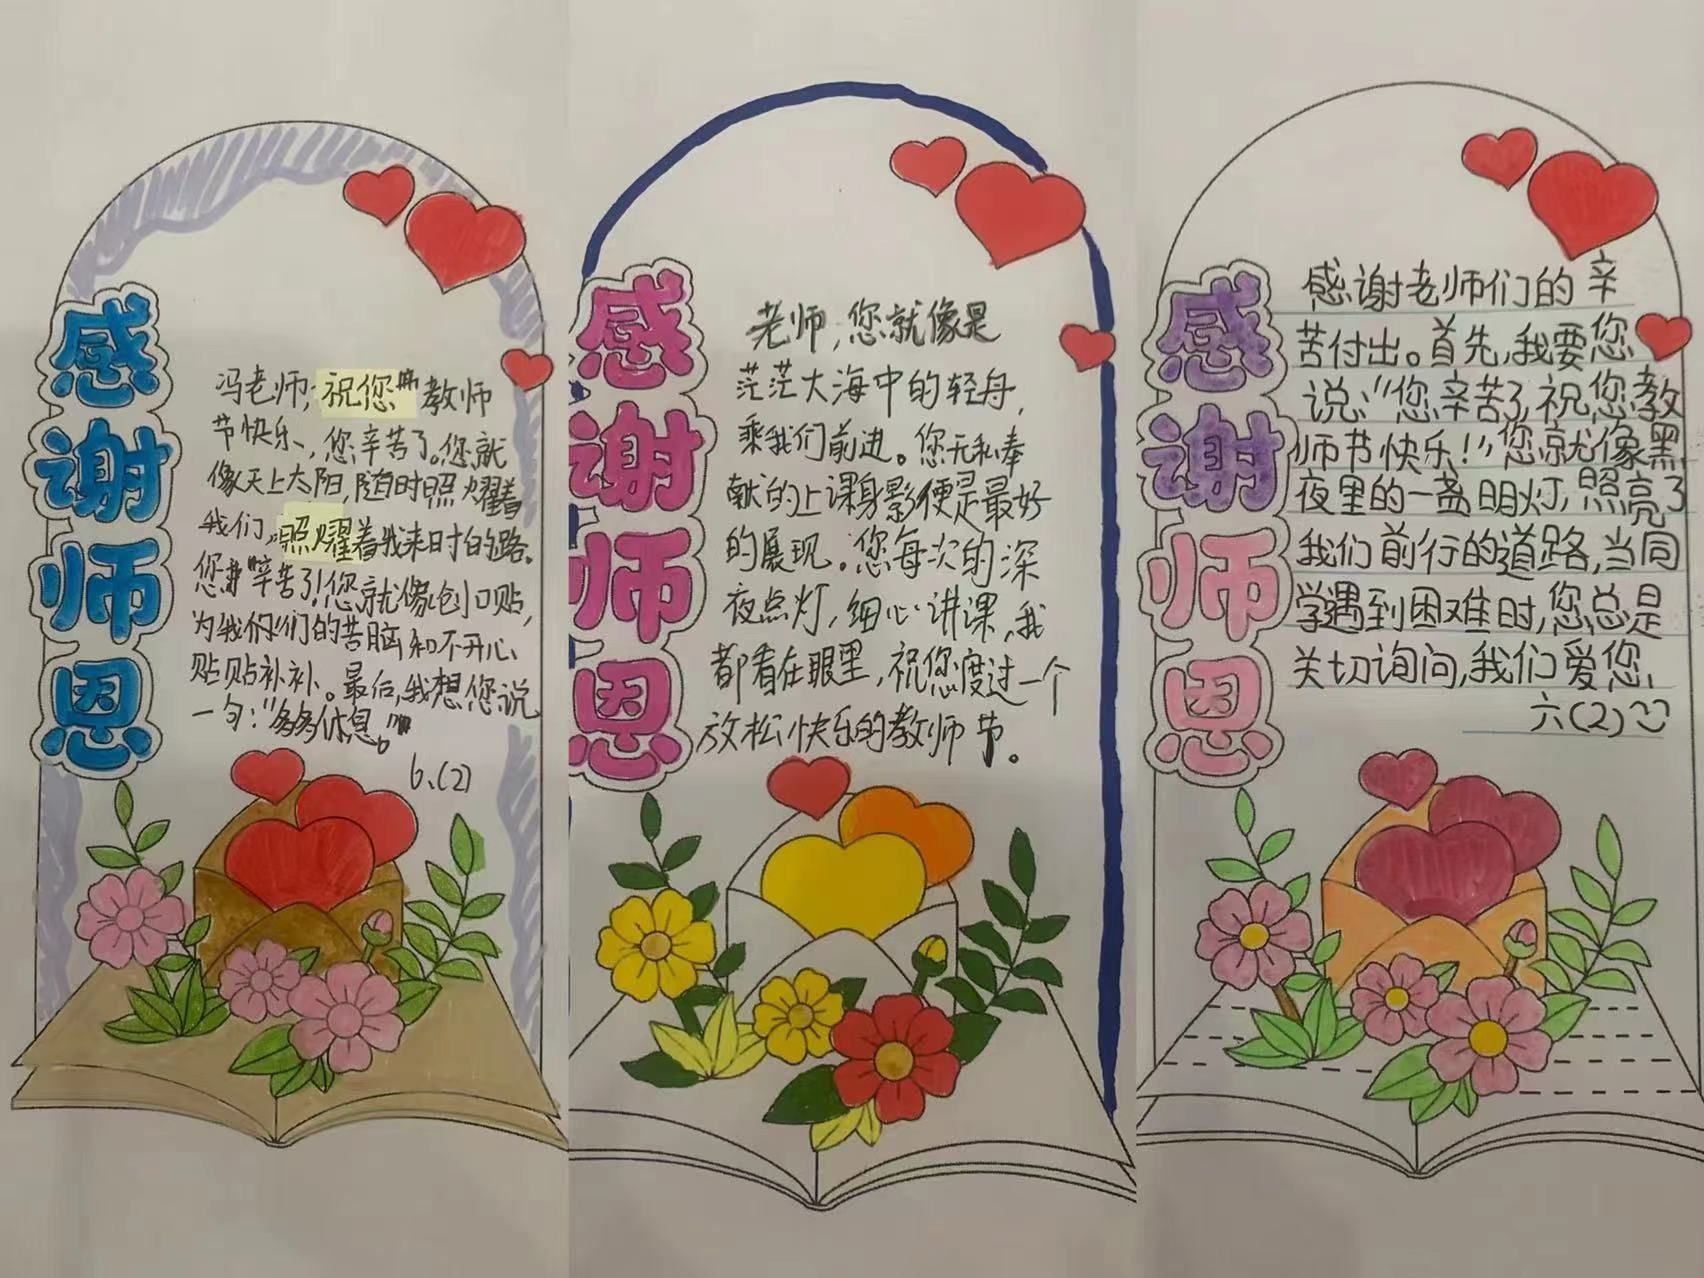 感谢师恩
冯老师,祝您教师
节快乐、您辛苦了。您就
像天上太阳,随时照耀着
我们,照耀着我来时的路。
您辛苦了!您就像创口贴,
为我们的苦脑和不开心、
贴贴补补。最后,我想您说
一句:"多多休息。"
6.(2)
感谢师恩
老师,您就像是
茫茫大海中的轻舟,
乘我们前进。您无私奉
献的上课身影便是最好
的展现。您每次的深
夜点灯,细心讲课,我
都看在眼里,祝您度过一个
放松快乐的教师节。
感谢师恩
感谢老师们的辛
苦付出。首先,我要您
说:"您辛苦了,祝您教
师节快乐!"您就像黑
夜里的一盏明灯,照亮了
我们前行的道路,当同
学遇到困难时,您总是
关切询问,我们爱您、
六(2)